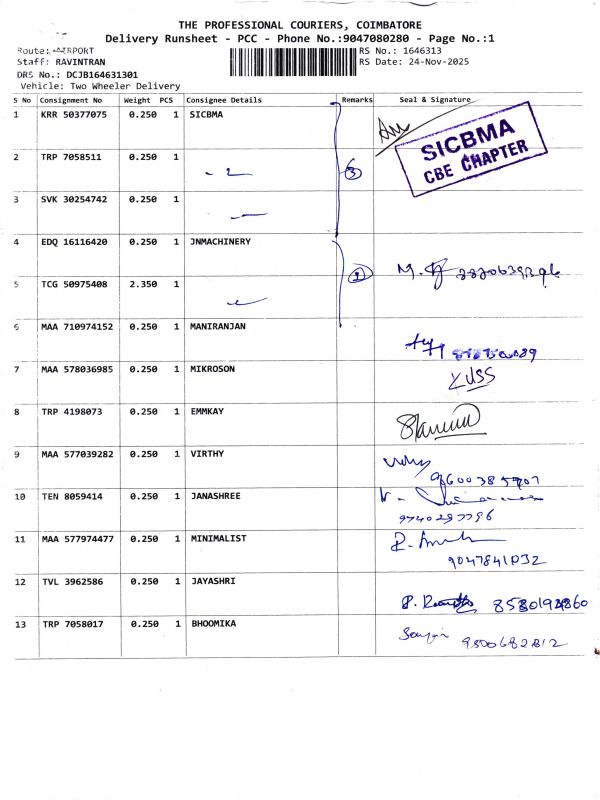 THE PROFESSIONAL COURIERS, COIMBATORE
Delivery Runsheet - PCC - Phone No.:9047080280 - Page No.:1
Route: AIRPORT RS No.: 1646313
Staff: RAVINTRAN RS Date: 24-Nov-2025
DRS No.: DCJB164631301
Vehicle: Two Wheeler Delivery
S No Consignment No Weight PCS Consignee Details Remarks Seal & Signature
1 KRR 50377075 0.250 1 SICBMA
SICBMA
CBE CHAPTER
2 TRP 7058511 0.250 1 3
3 SVK 30254742 0.250 1
4 EDQ 16116420 0.250 1 JNMACHINERY
5 TCG 50975408 2.350 1 2
6 MAA 710974152 0.250 1 MANIRANJAN
7 MAA 578036985 0.250 1 MIKROSON
8 TRP 4198073 0.250 1 EMMKAY
9 MAA 577039282 0.250 1 VIRTHY
10 TEN 8059414 0.250 1 JANASHREE
9740297796
11 MAA 577974477 0.250 1 MINIMALIST
9047841032
12 TVL 3962586 0.250 1 JAYASHRI
13 TRP 7058017 0.250 1 BHOOMIKA